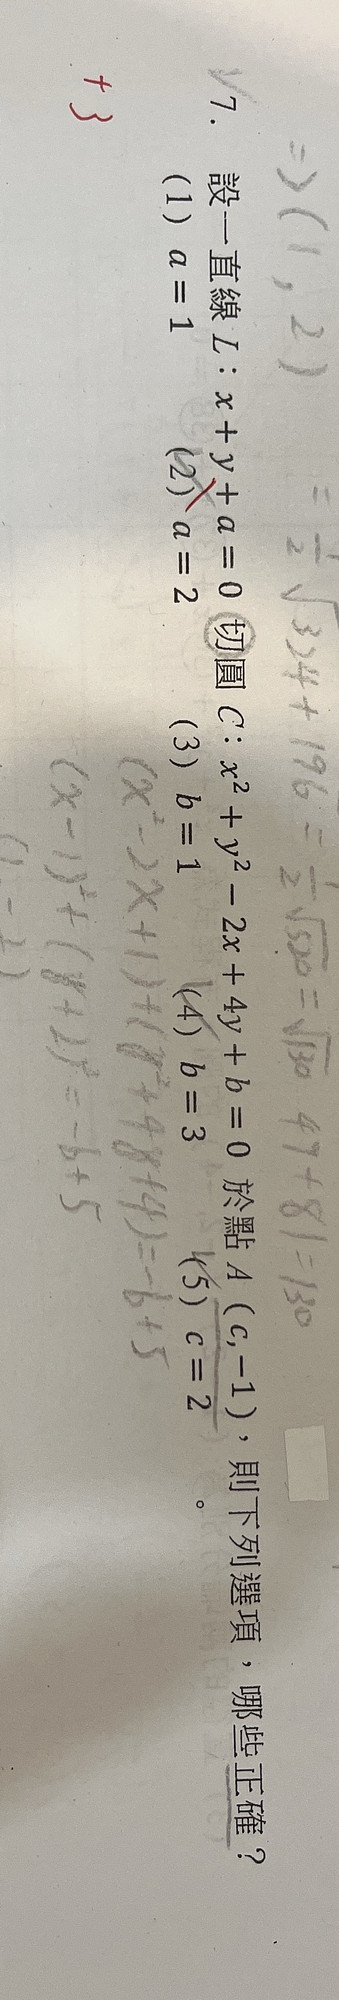 ⇒(1, 2)
= 1/2 √324+196 = 1/2 √520 = √130 49+81=130
7. 設一直線 L：x + y + a = 0 切圓 C：x² + y² − 2x + 4y + b = 0 於點 A (c, −1)，則下列選項，哪些正確？
(1) a = 1 (2) a = 2 (3) b = 1 (4) b = 3 (5) c = 2 。
(x²-2x+1)+(y²+4y+4)=-b+5
+3
(x-1)²+(y+2)²=-b+5